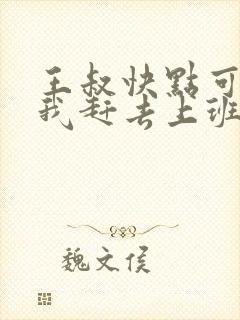 王叔快點可
我赶去上班
魏文侯